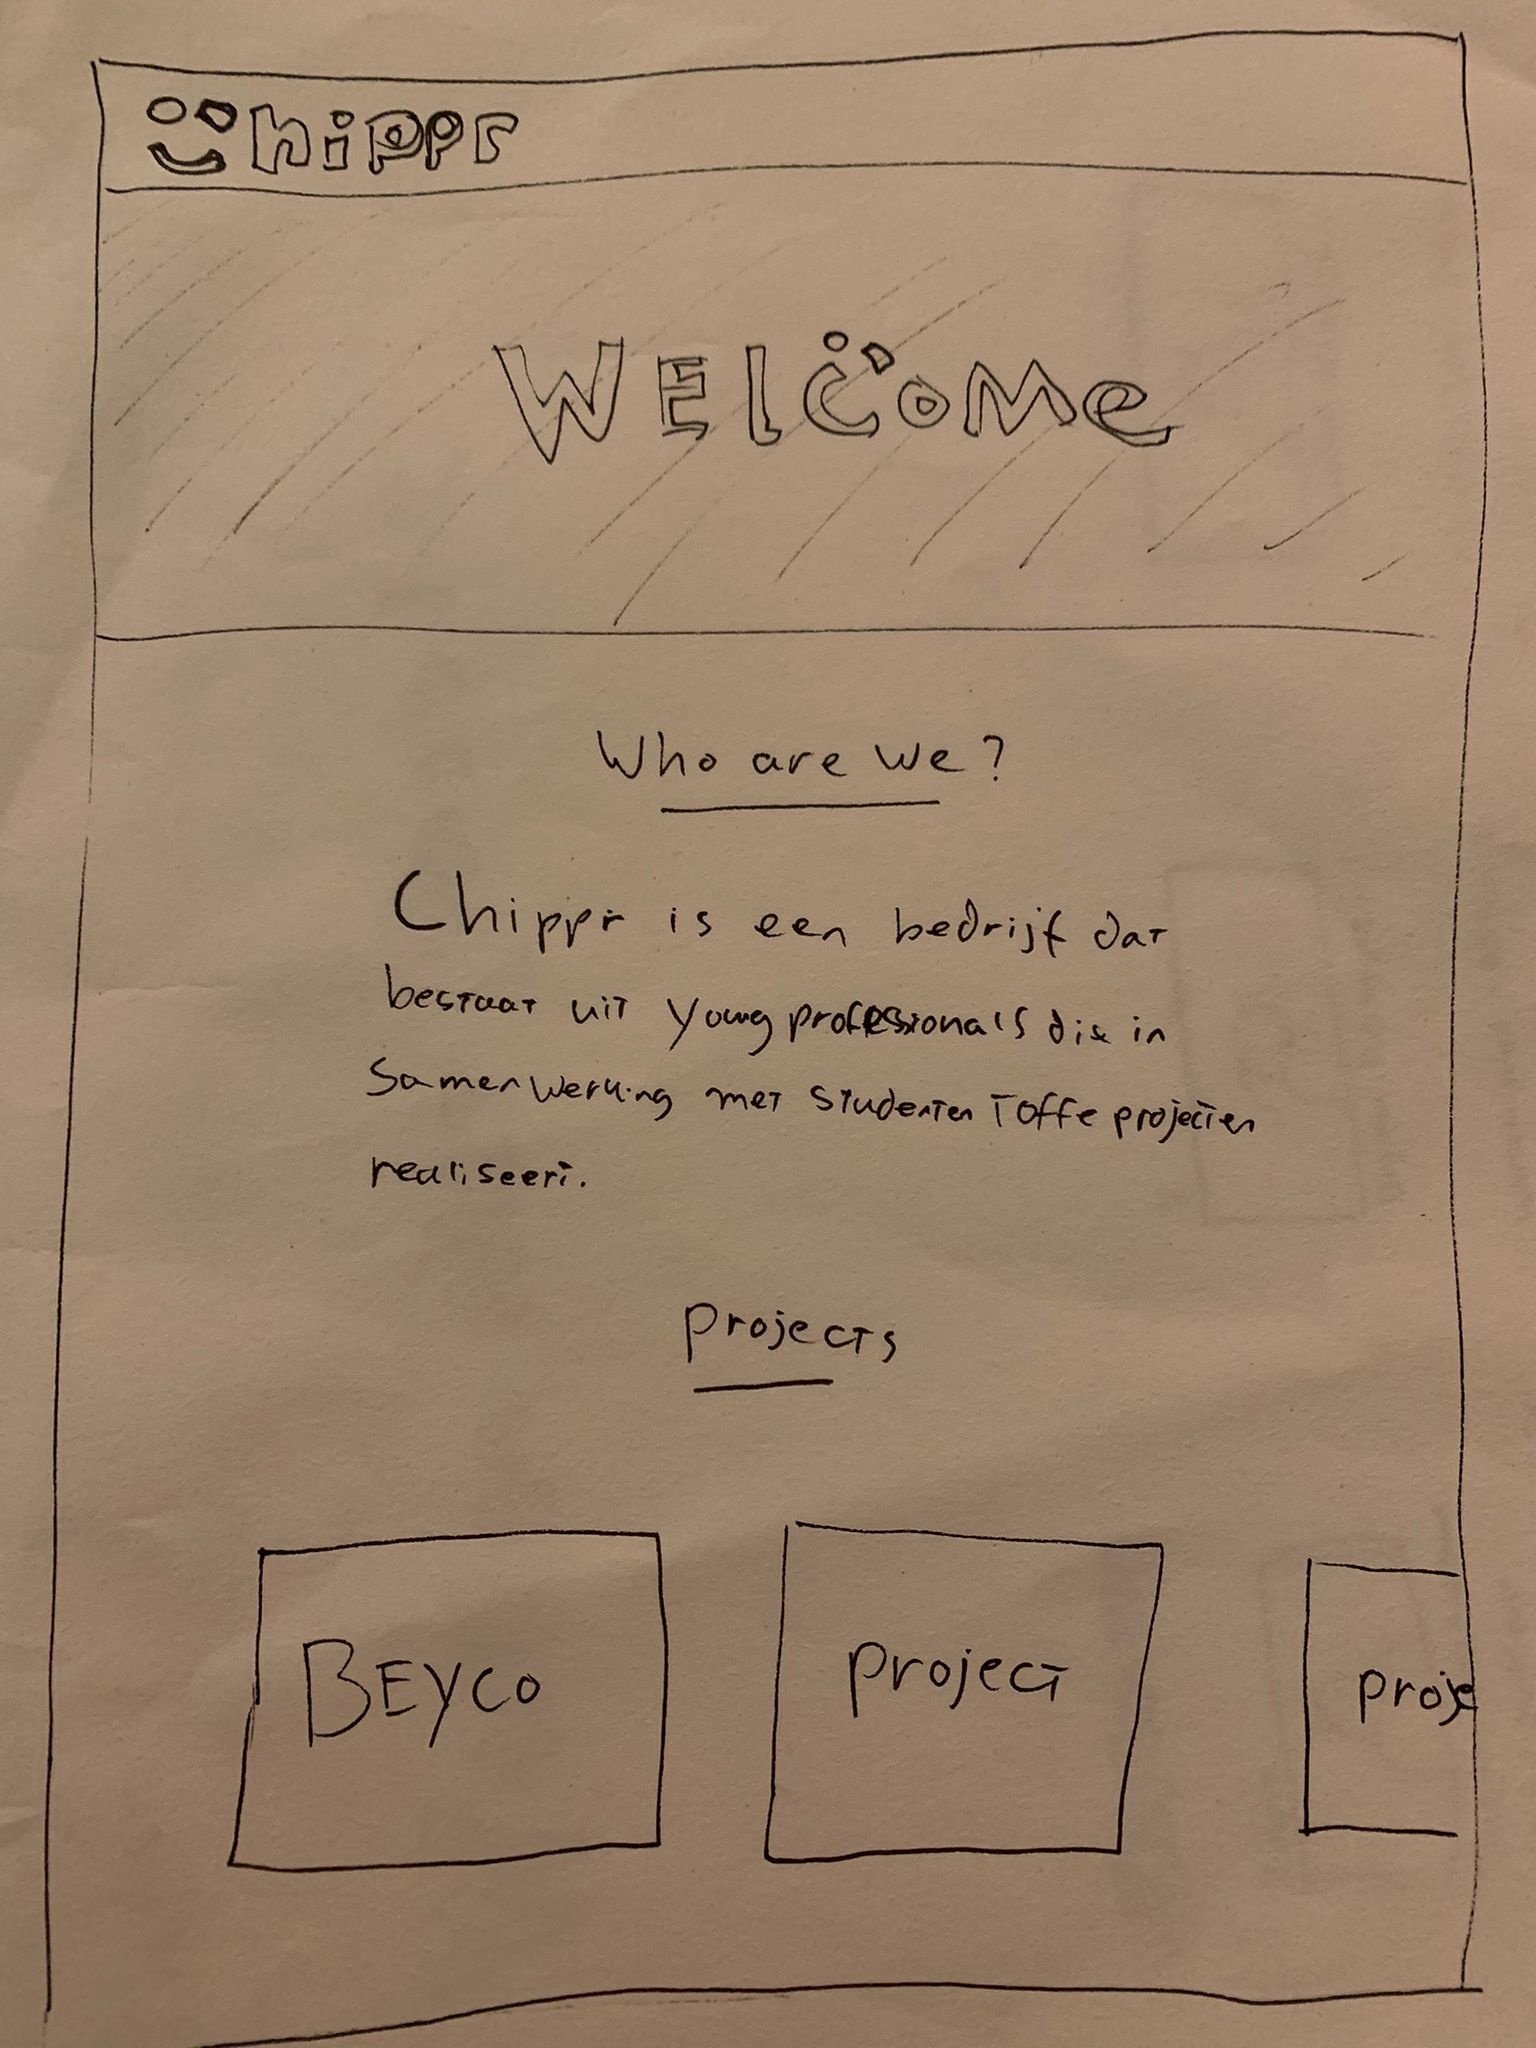 Chippr
WElCoMe
Who are we?
Chippr is een bedrijf dat
bestaat uit Young professionals die in
Samenwerking met studenten Toffe projecten
realiseert.
Projects
BEYCO
project
proje